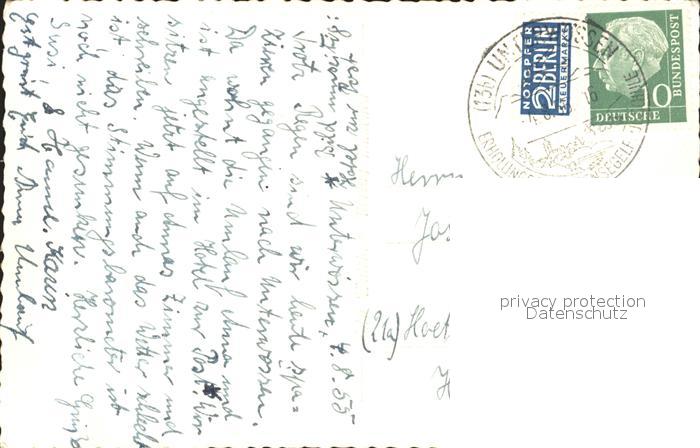 * Unterwössen, 4. 8. 55
Trotz Regen sind wir heute spa=
zieren gegangen nach Unterwossen.
Da wohnt die Umlauf Anna und
ist angestellt im Hotel zur Post. Wir
sitzen jetzt auf Annas Zimmer und
schreiben. Wenn auch das Wetter schlecht
ist, das Stimmungsbarometer ist
noch nicht gesunken. Herzliche Grüße
Susi & Hannel. Karen
Es grüßt Euch Anny Umlauf
Herrn
(21a)
NOTOPFER
2 BERLIN
STEUERMARKE
10
DEUTSCHE
BUNDESPOST
(13b)
privacy protection
Datenschutz